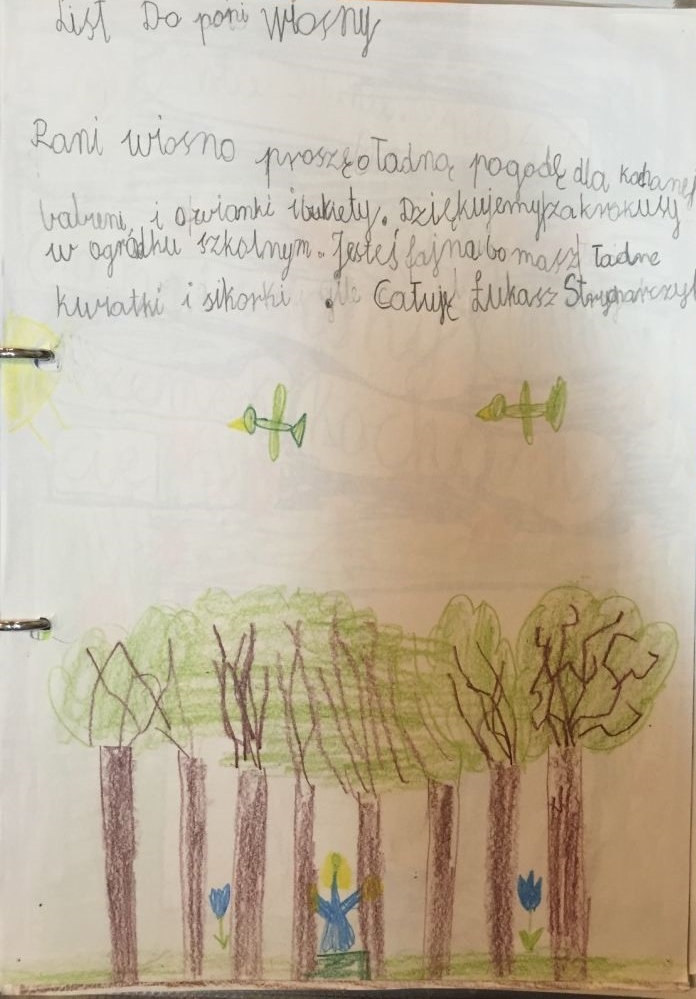 List Do pani Wiosny
Pani wiosno proszę o ładną pogodę dla kochanej
i o wianki i bukiety. Dziękujemy za krokusy
w ogródku szkolnym. Jesteś fajna bo masz ładne
kwiatki i sikorki. Całuję Łukasz